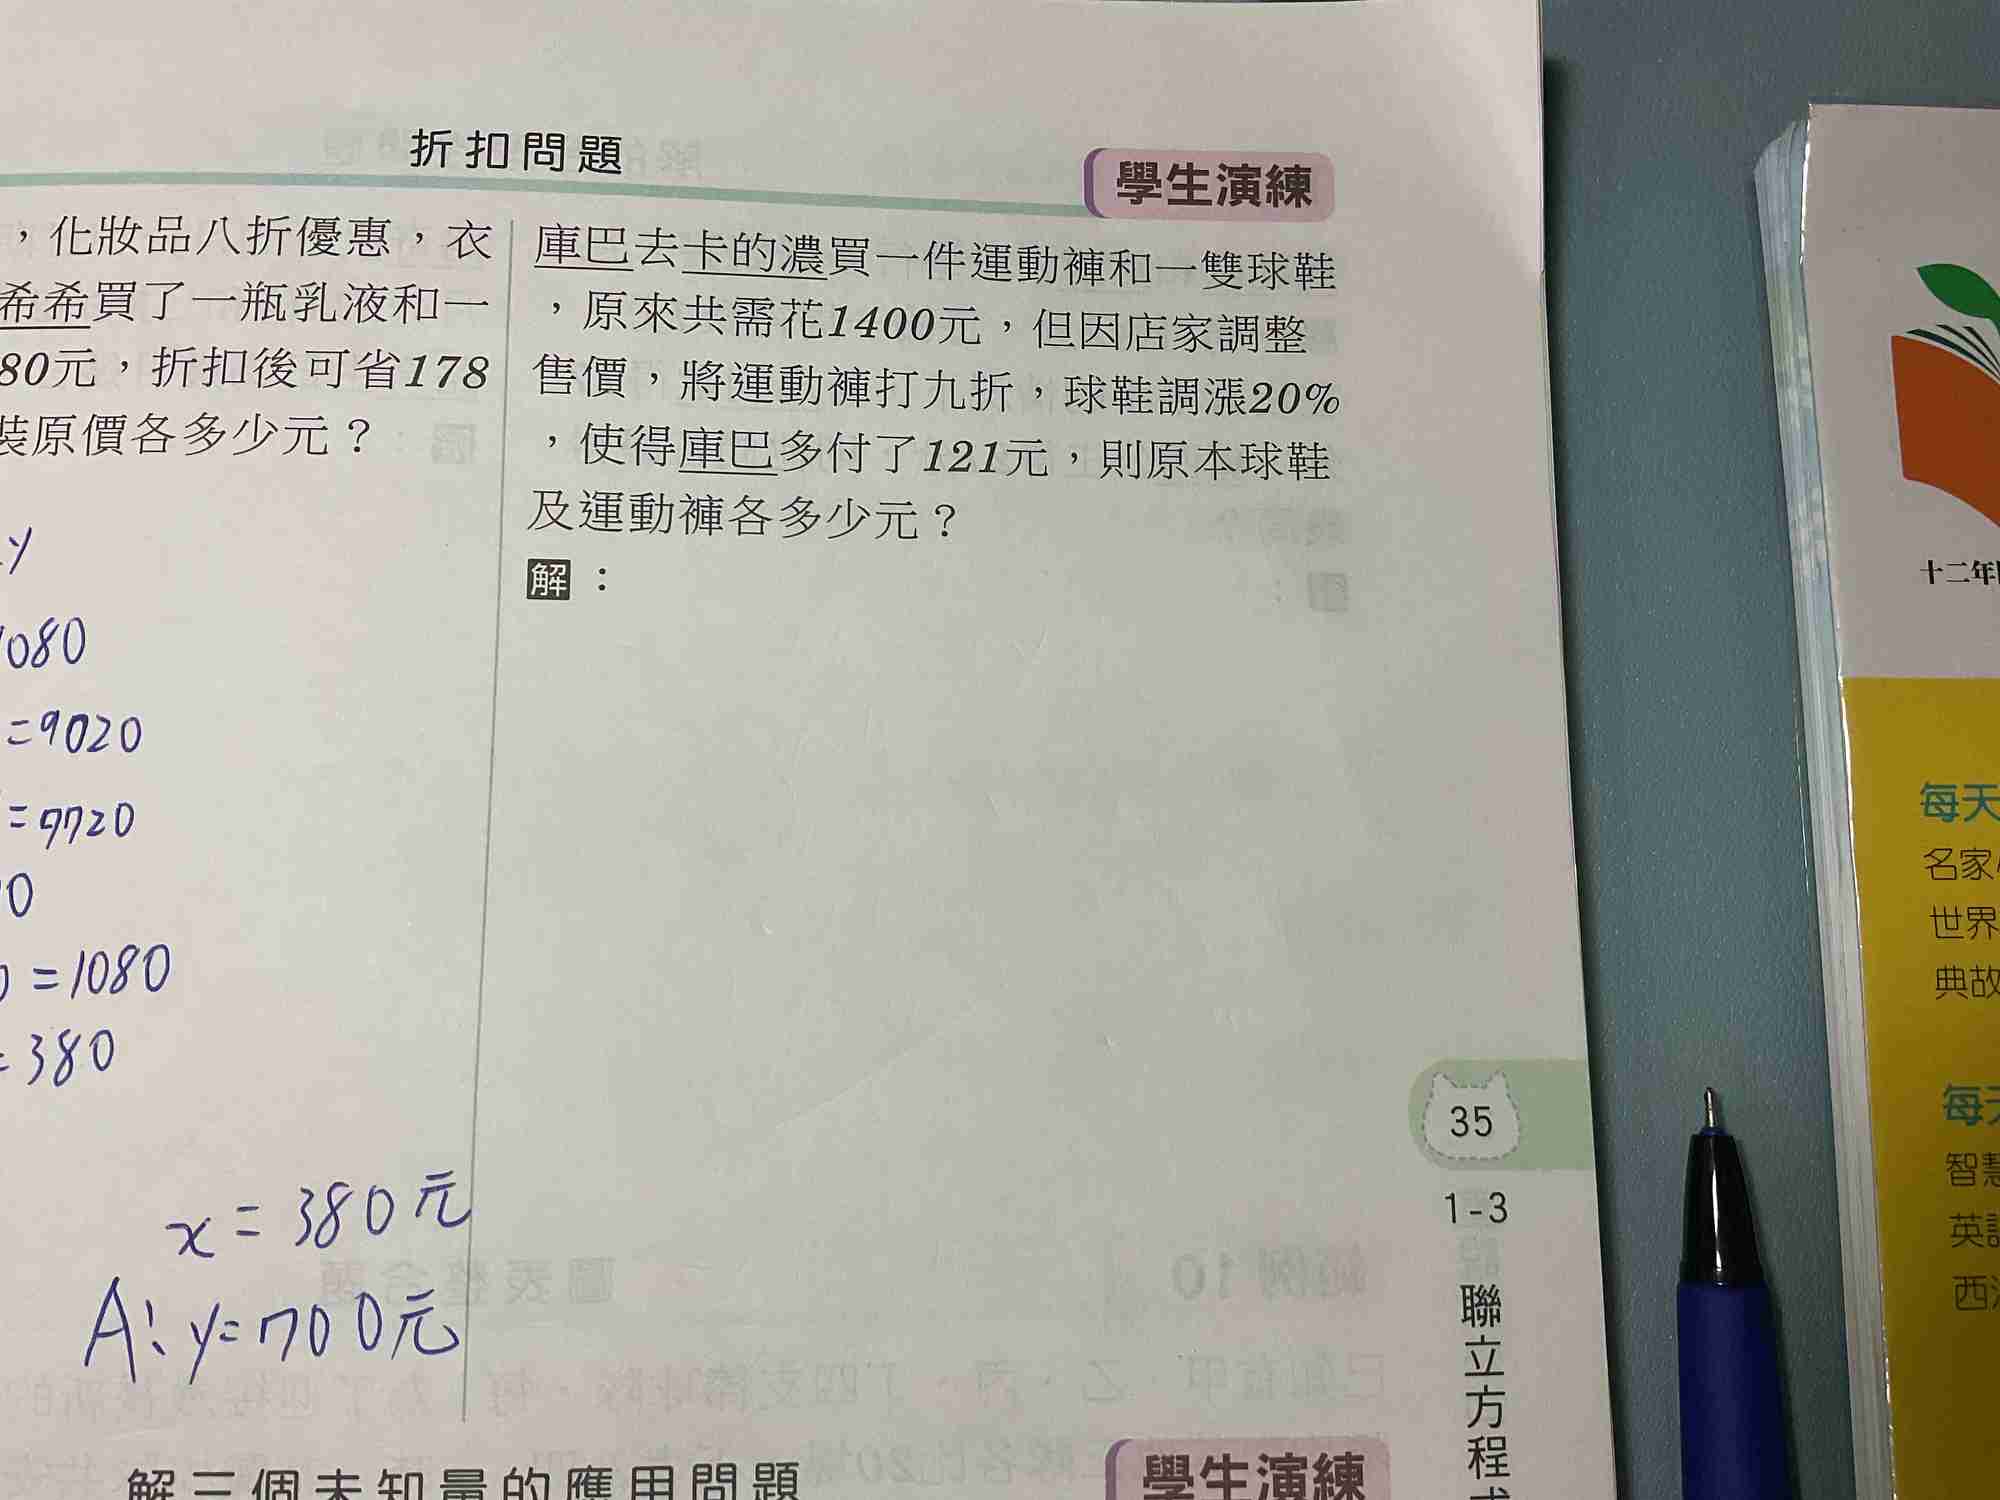 折扣問題
學生演練
,化妝品八折優惠,衣
希希買了一瓶乳液和一
80元,折扣後可省178
裝原價各多少元?
y
1080
=9020
=7720
0
=1080
=380
x=380元
A:y=700元
庫巴去卡的濃買一件運動褲和一雙球鞋
,原來共需花1400元,但因店家調整
售價,將運動褲打九折,球鞋調漲20%
,使得庫巴多付了121元,則原本球鞋
及運動褲各多少元?
解:
35
1-3
聯立方程式
解三個未知量的應用問題
學生演練
十二年
每天
名家
世界
典故
每天
智慧
英語
西